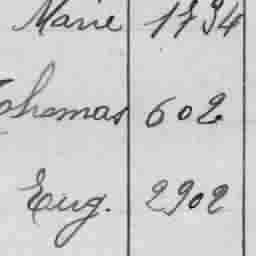 Marie 1794
Thomas 602
Eug. 2902